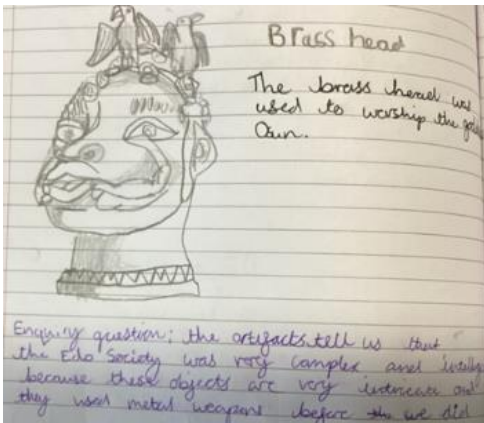 Brass head
The brass head was
used to worship the god
Osun.
Enquiry question: the artifacts tell us that
the Edo Society was very complex and
because these objects are very intricate and
they used metal weapons before we did